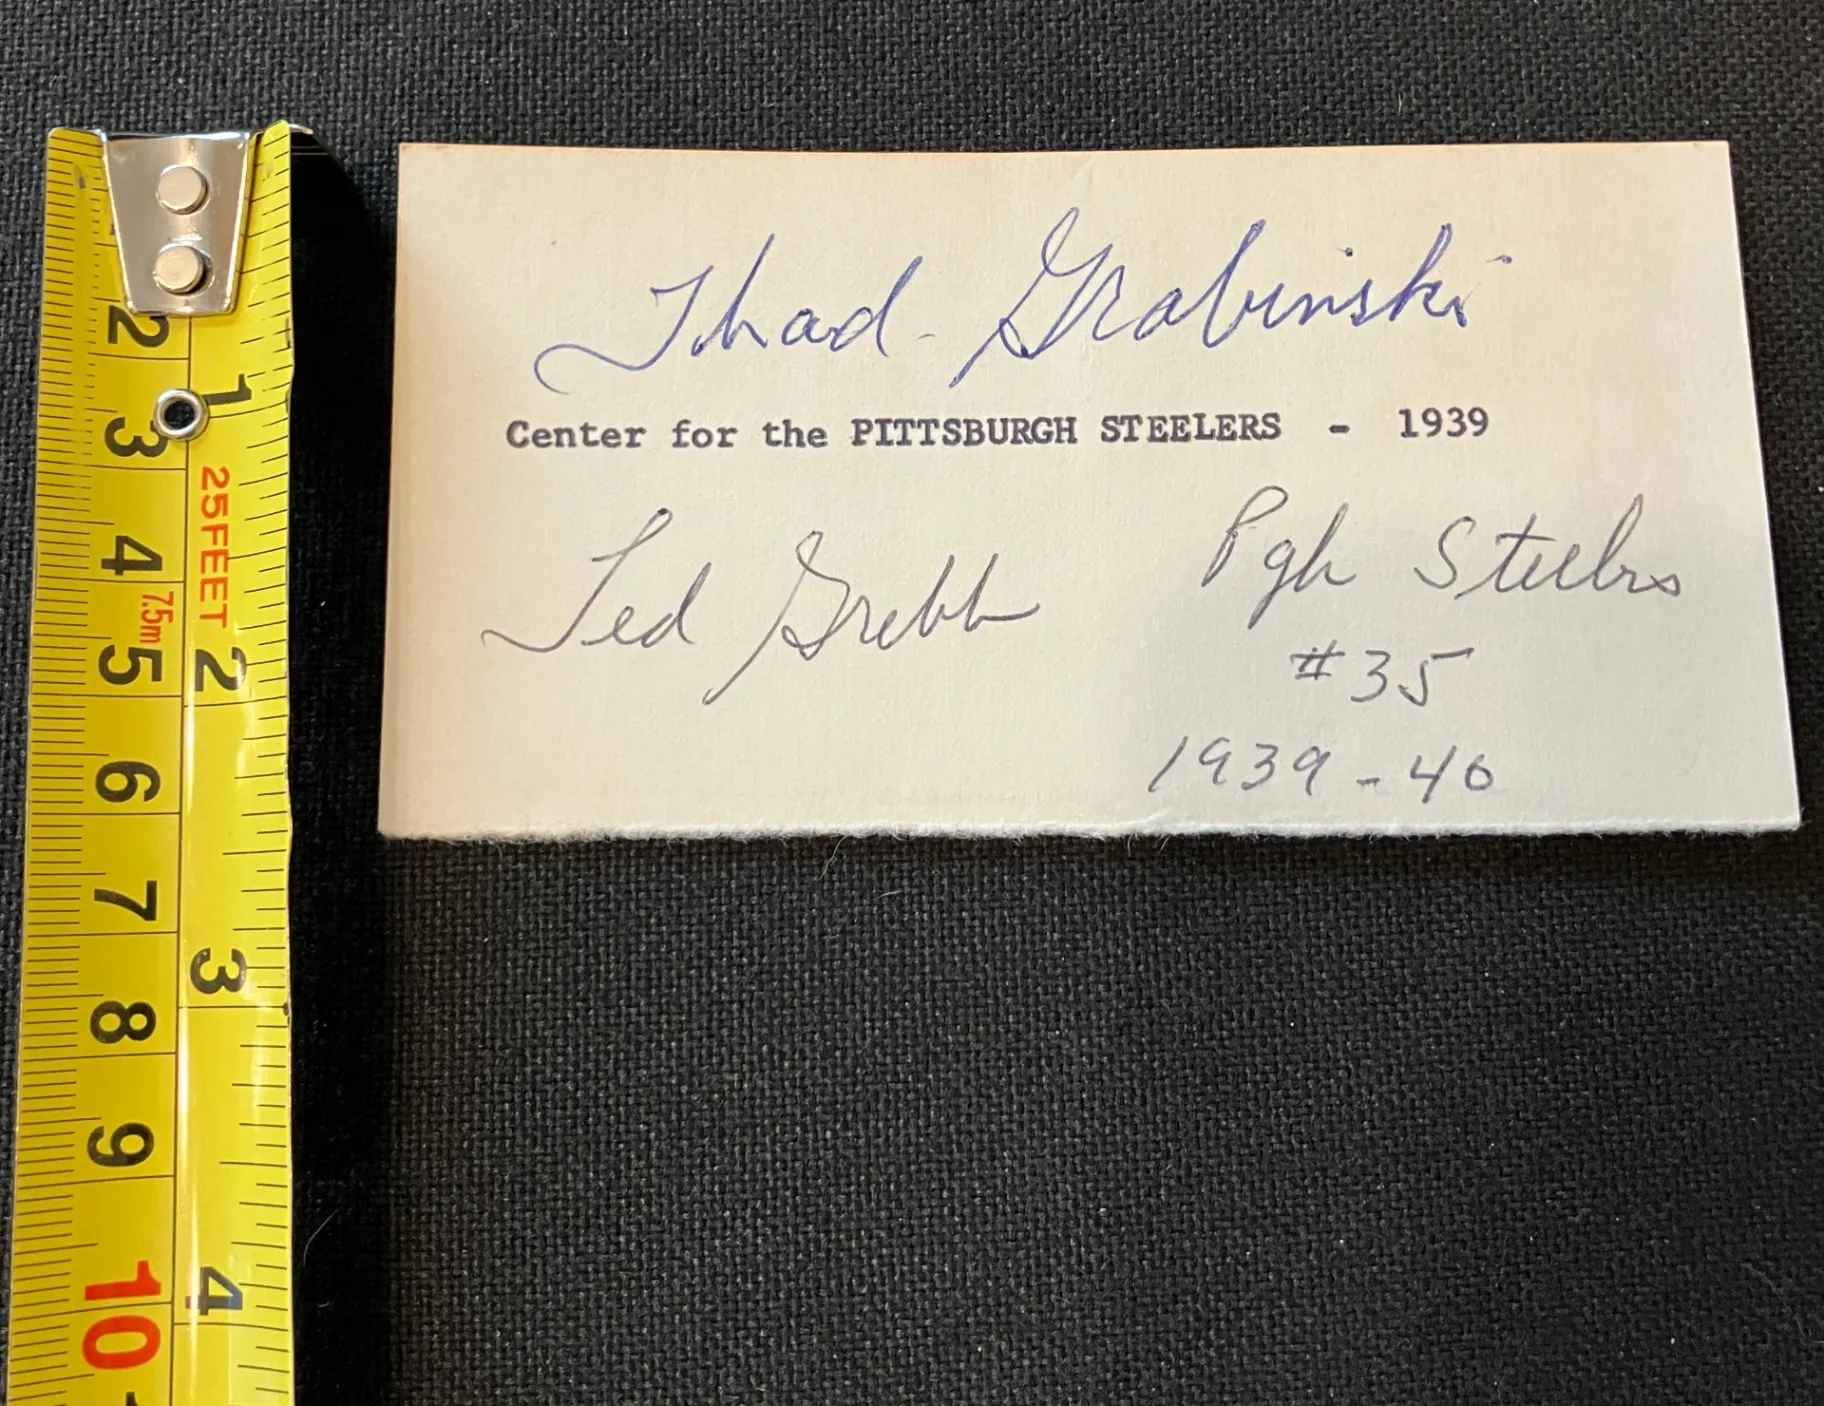 Thad Grabinski
Center for the PITTSBURGH STEELERS - 1939
Ted Grebb
Pgh Steelers
#35
1939-40
2
1
3
25FEET
4
7.5m
5
2
6
7
3
8
9
4
10